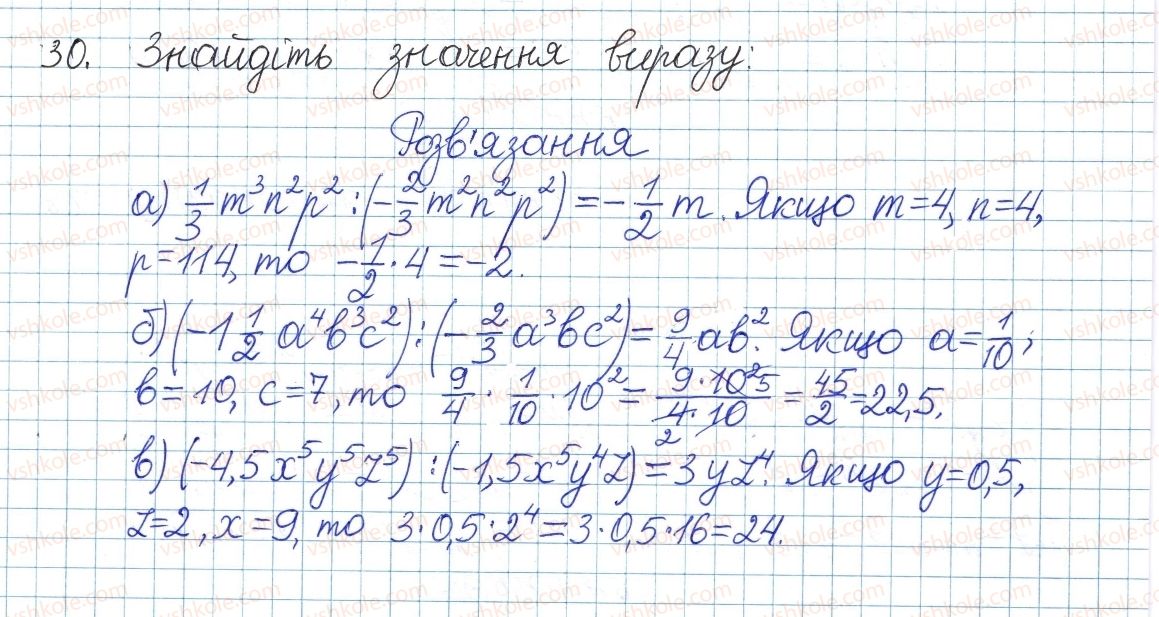 30. Знайдіть значення виразу:
Розв'язання
а) 1/3 m³n²p² : (-2/3 m²n²p²) = -1/2 m. Якщо m=4, n=4,
p=114, то -1/2 · 4 = -2.
б) (-1 1/2 a⁴b³c²) : (-2/3 a³bc²) = 9/4 ab². Якщо a = 1/10,
b=10, c=7, то 9/4 · 1/10 · 10² = 9·10² 5/4·10 2 = 45/2 = 22,5.
в) (-4,5x⁵y⁵z⁵) : (-1,5x⁵y⁴z) = 3yz⁴. Якщо y=0,5,
z=2, x=9, то 3·0,5·2⁴ = 3·0,5·16 = 24.